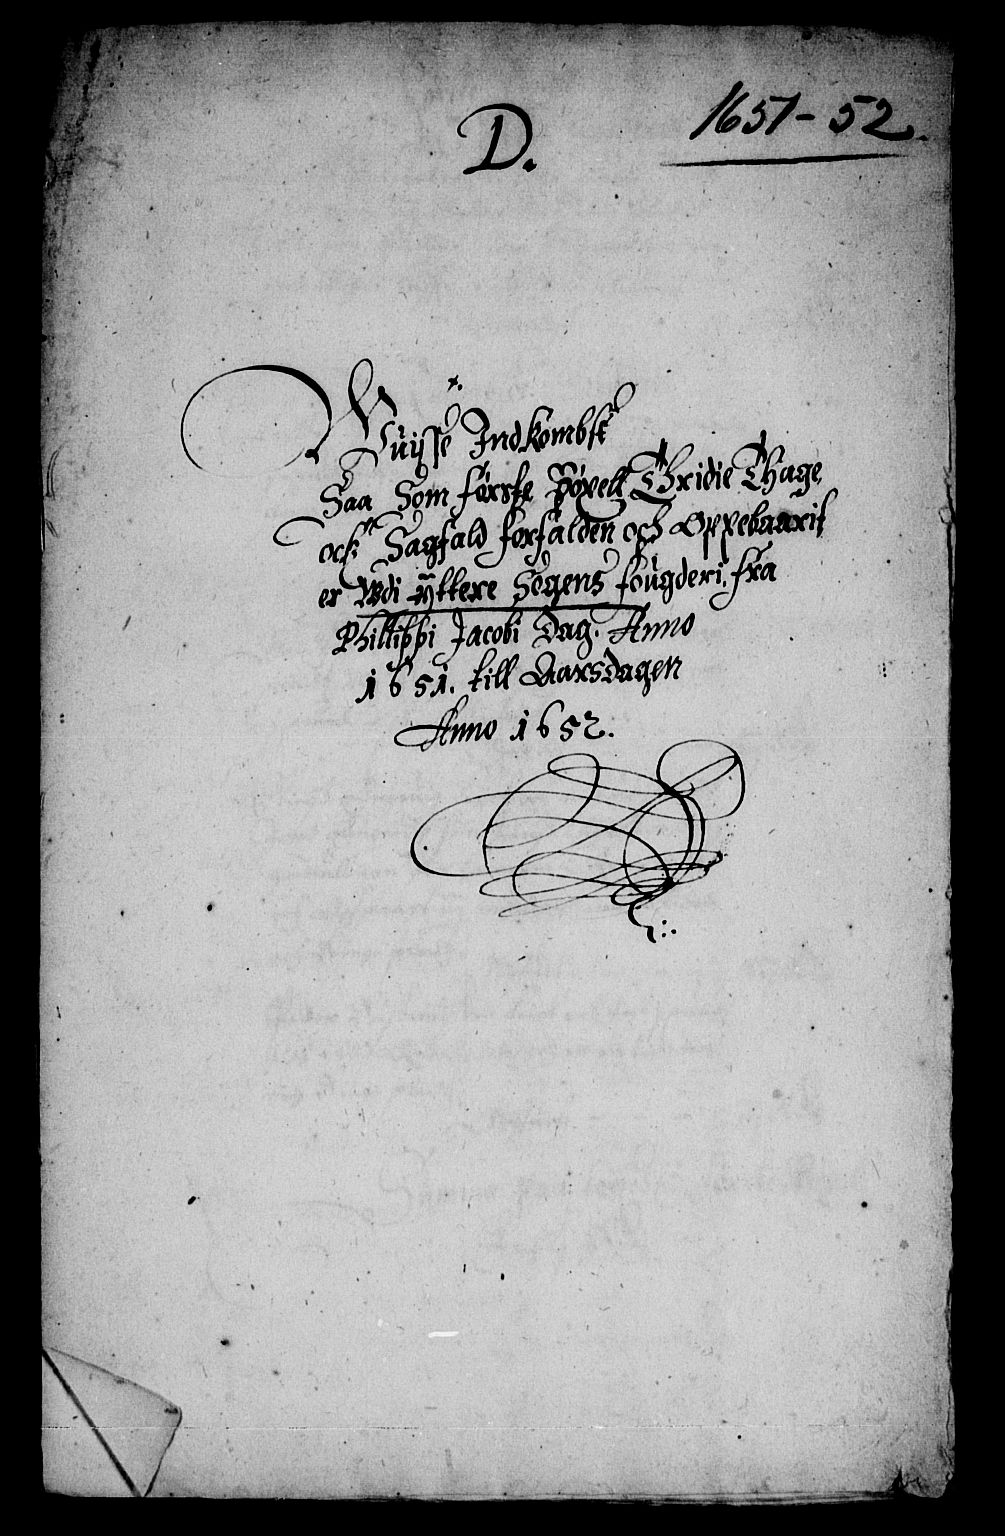 1651-52.
D.
Vuisse Indkombst
Saa Som første Bøxell Thridie Thage,
och Sagfald forfalden och Oppebaarit
er Udi Ÿttere Sogens fougderi, fra
Philippi Jacobi Dag. Anno
1651. till Aarsdagen
Anno 1652.